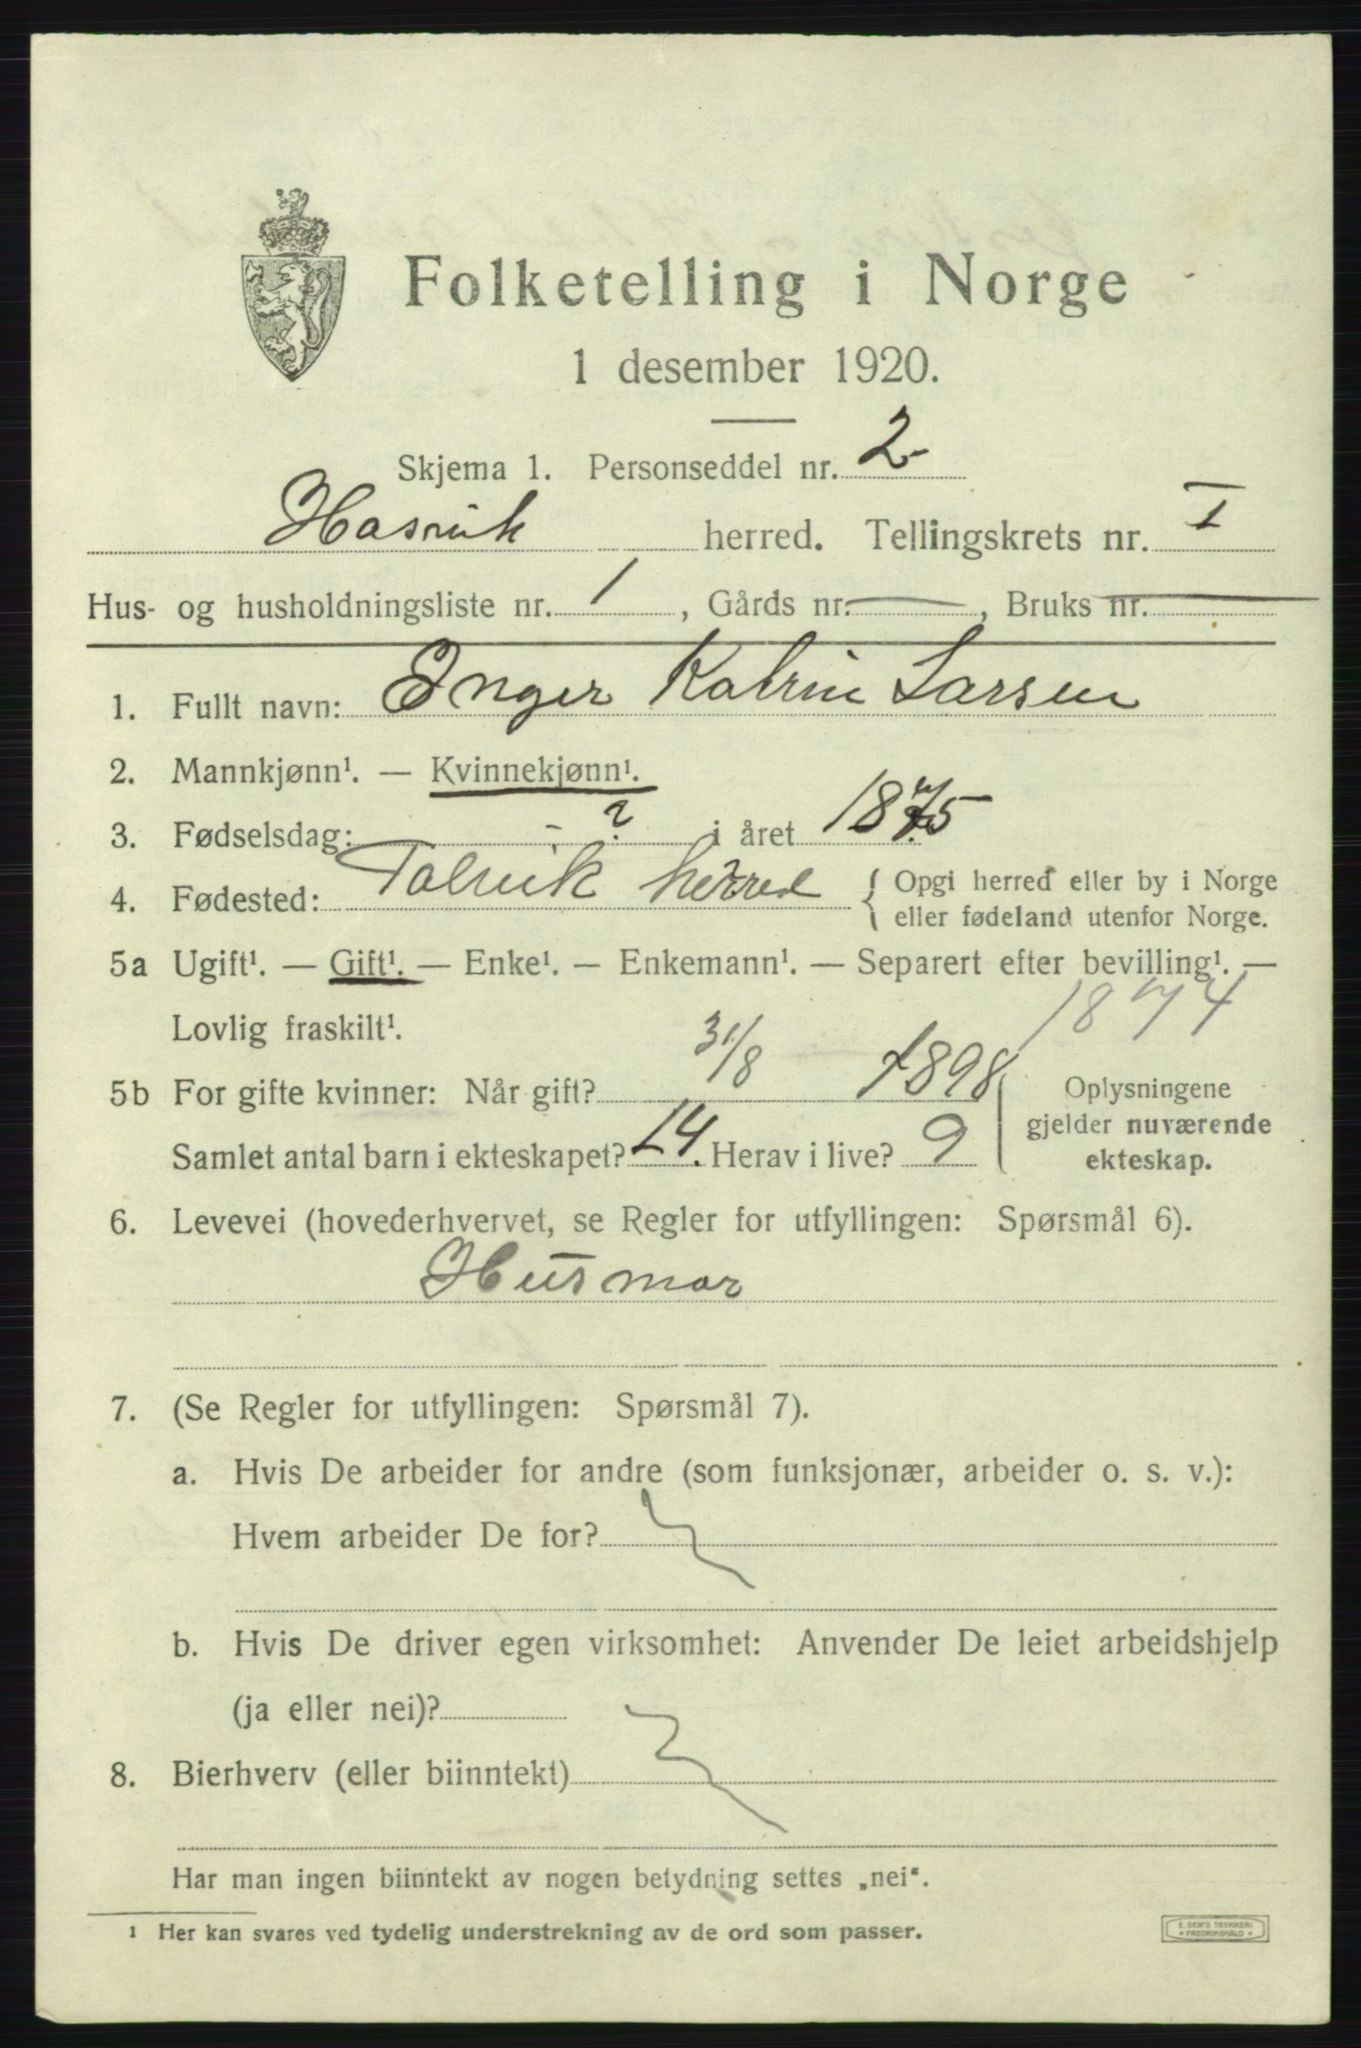 Folketelling i Norge
1 desember 1920.
Skjema 1. Personseddel nr. 2
Hasvik herred. Tellingskrets nr. I
Hus- og husholdningsliste nr. 1, Gårds nr. —, Bruks nr. —
1. Fullt navn: Inger Katrin Larsen
2. Mannkjønn¹. — Kvinnekjønn¹.
3. Fødselsdag: - ? i året 1875
4. Fødested: Talvik herred { Opgi herred eller by i Norge
eller fødeland utenfor Norge.
5a Ugift¹. — Gift¹. — Enke¹. — Enkemann¹. — Separert efter bevilling¹. —
Lovlig fraskilt¹. 1874
5b For gifte kvinner: Når gift? 31/8 1898 Oplysningene
gjelder nuværende
Samlet antal barn i ekteskapet? 14. Herav i live? 9 ekteskap.
6. Levevei (hovederhvervet, se Regler for utfyllingen: Spørsmål 6).
Husmor
7. (Se Regler for utfyllingen: Spørsmål 7).
a. Hvis De arbeider for andre (som funksjonær, arbeider o. s. v.):
Hvem arbeider De for?
b. Hvis De driver egen virksomhet: Anvender De leiet arbeidshjelp
(ja eller nei)?
8. Bierhverv (eller biinntekt)
Har man ingen biinntekt av nogen betydning settes „nei“.
¹ Her kan svares ved tydelig understrekning av de ord som passer.
E. SEM'S TRYKKERI
* FREDRIKSHALD *